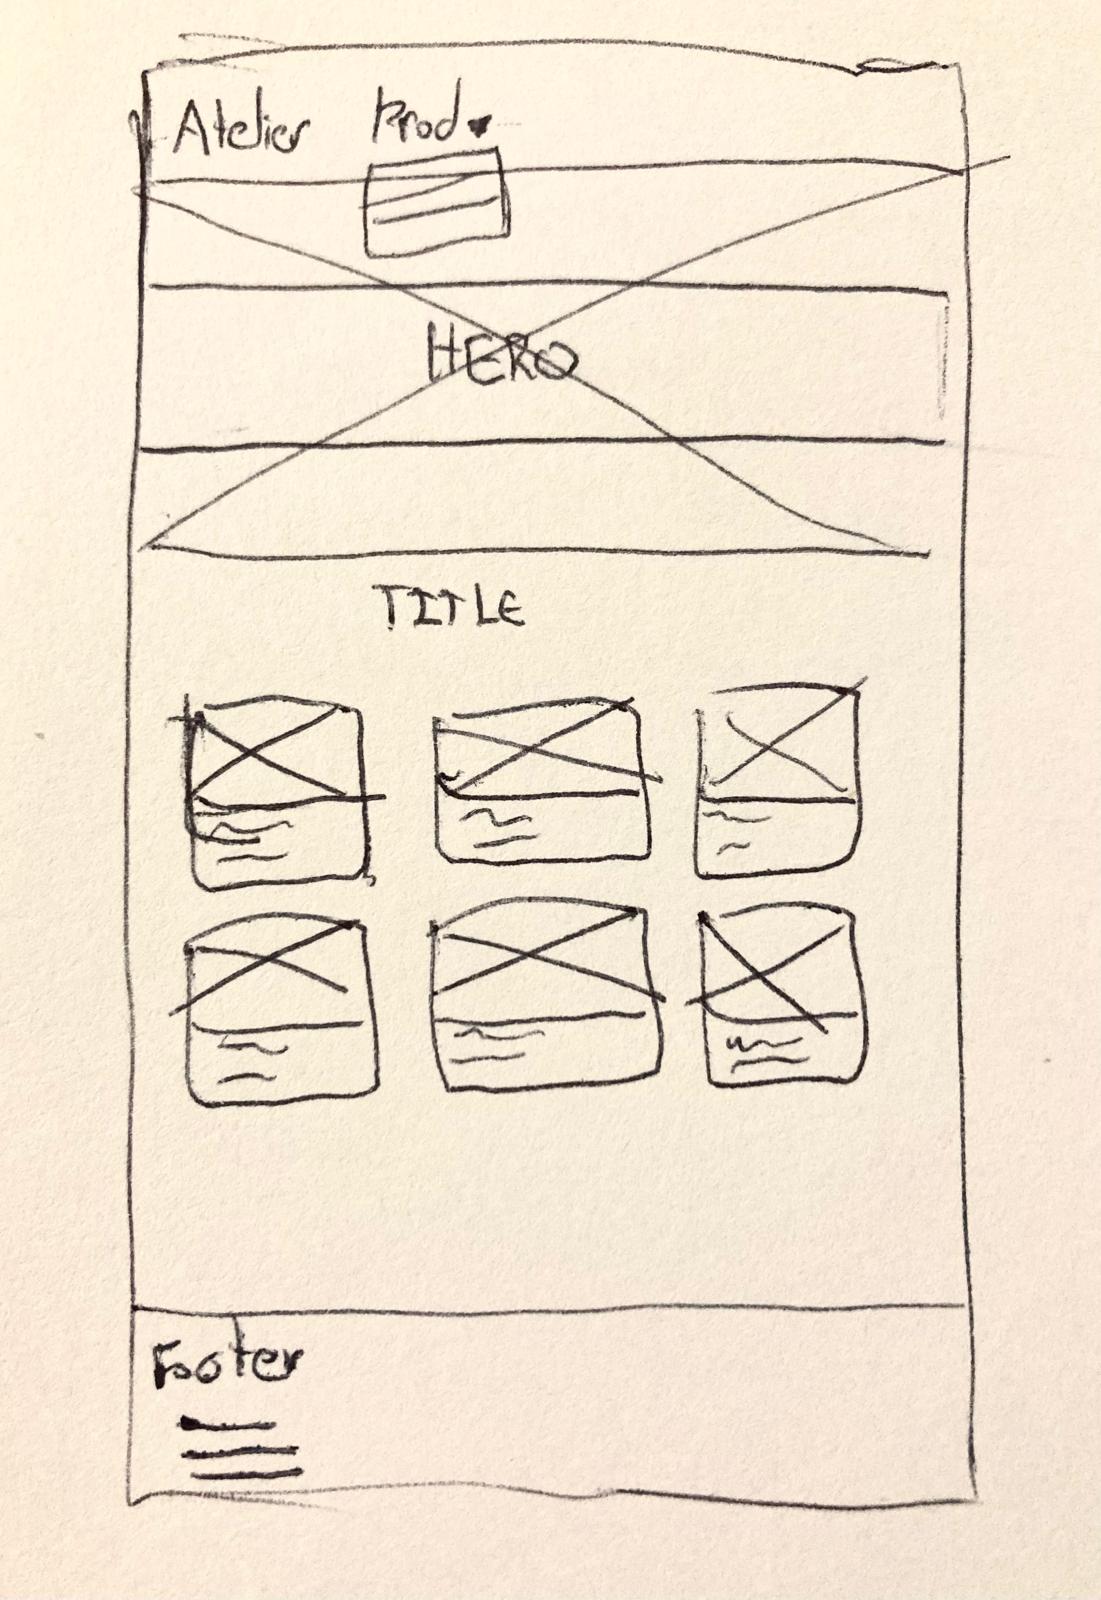 Atelier Prod
HERO
TITLE
Footer